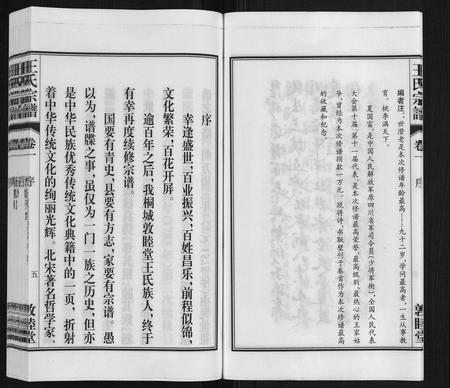 王氏宗譜
卷一
序
敦睦堂
编者注：世澄老是本次修谱年龄最高——九十二岁，学问最高者，一生从事教
育，桃李满天下。
夏国富，是中国人民解放军原四川省军司令员（少将军衔），全国人民代表
大会第十届、第十一届代表，是本次修谱最高荣誉、最高级别、最热心的王家姑
爷，曾经为本次修谱捐款一万元。现将诗、书联登刊于卷首作为本次修谱最高
的收藏和纪念。
王氏宗譜
卷一
序
五
敦睦堂
序
幸逢盛世，百业振兴，百姓昌乐，前程似锦，
文化繁荣，百花开屏。
逾百年之后，我桐城敦睦堂王氏族人，终于
有幸再度续修宗谱。
国要有青史，县要有方志，家要有宗谱。愚
以为，谱牒之事，虽仅为一门一族之历史，但亦
是中华民族优秀传统文化典籍中的一页，折射
着中华传统文化的绚丽光辉。北宋著名哲学家、